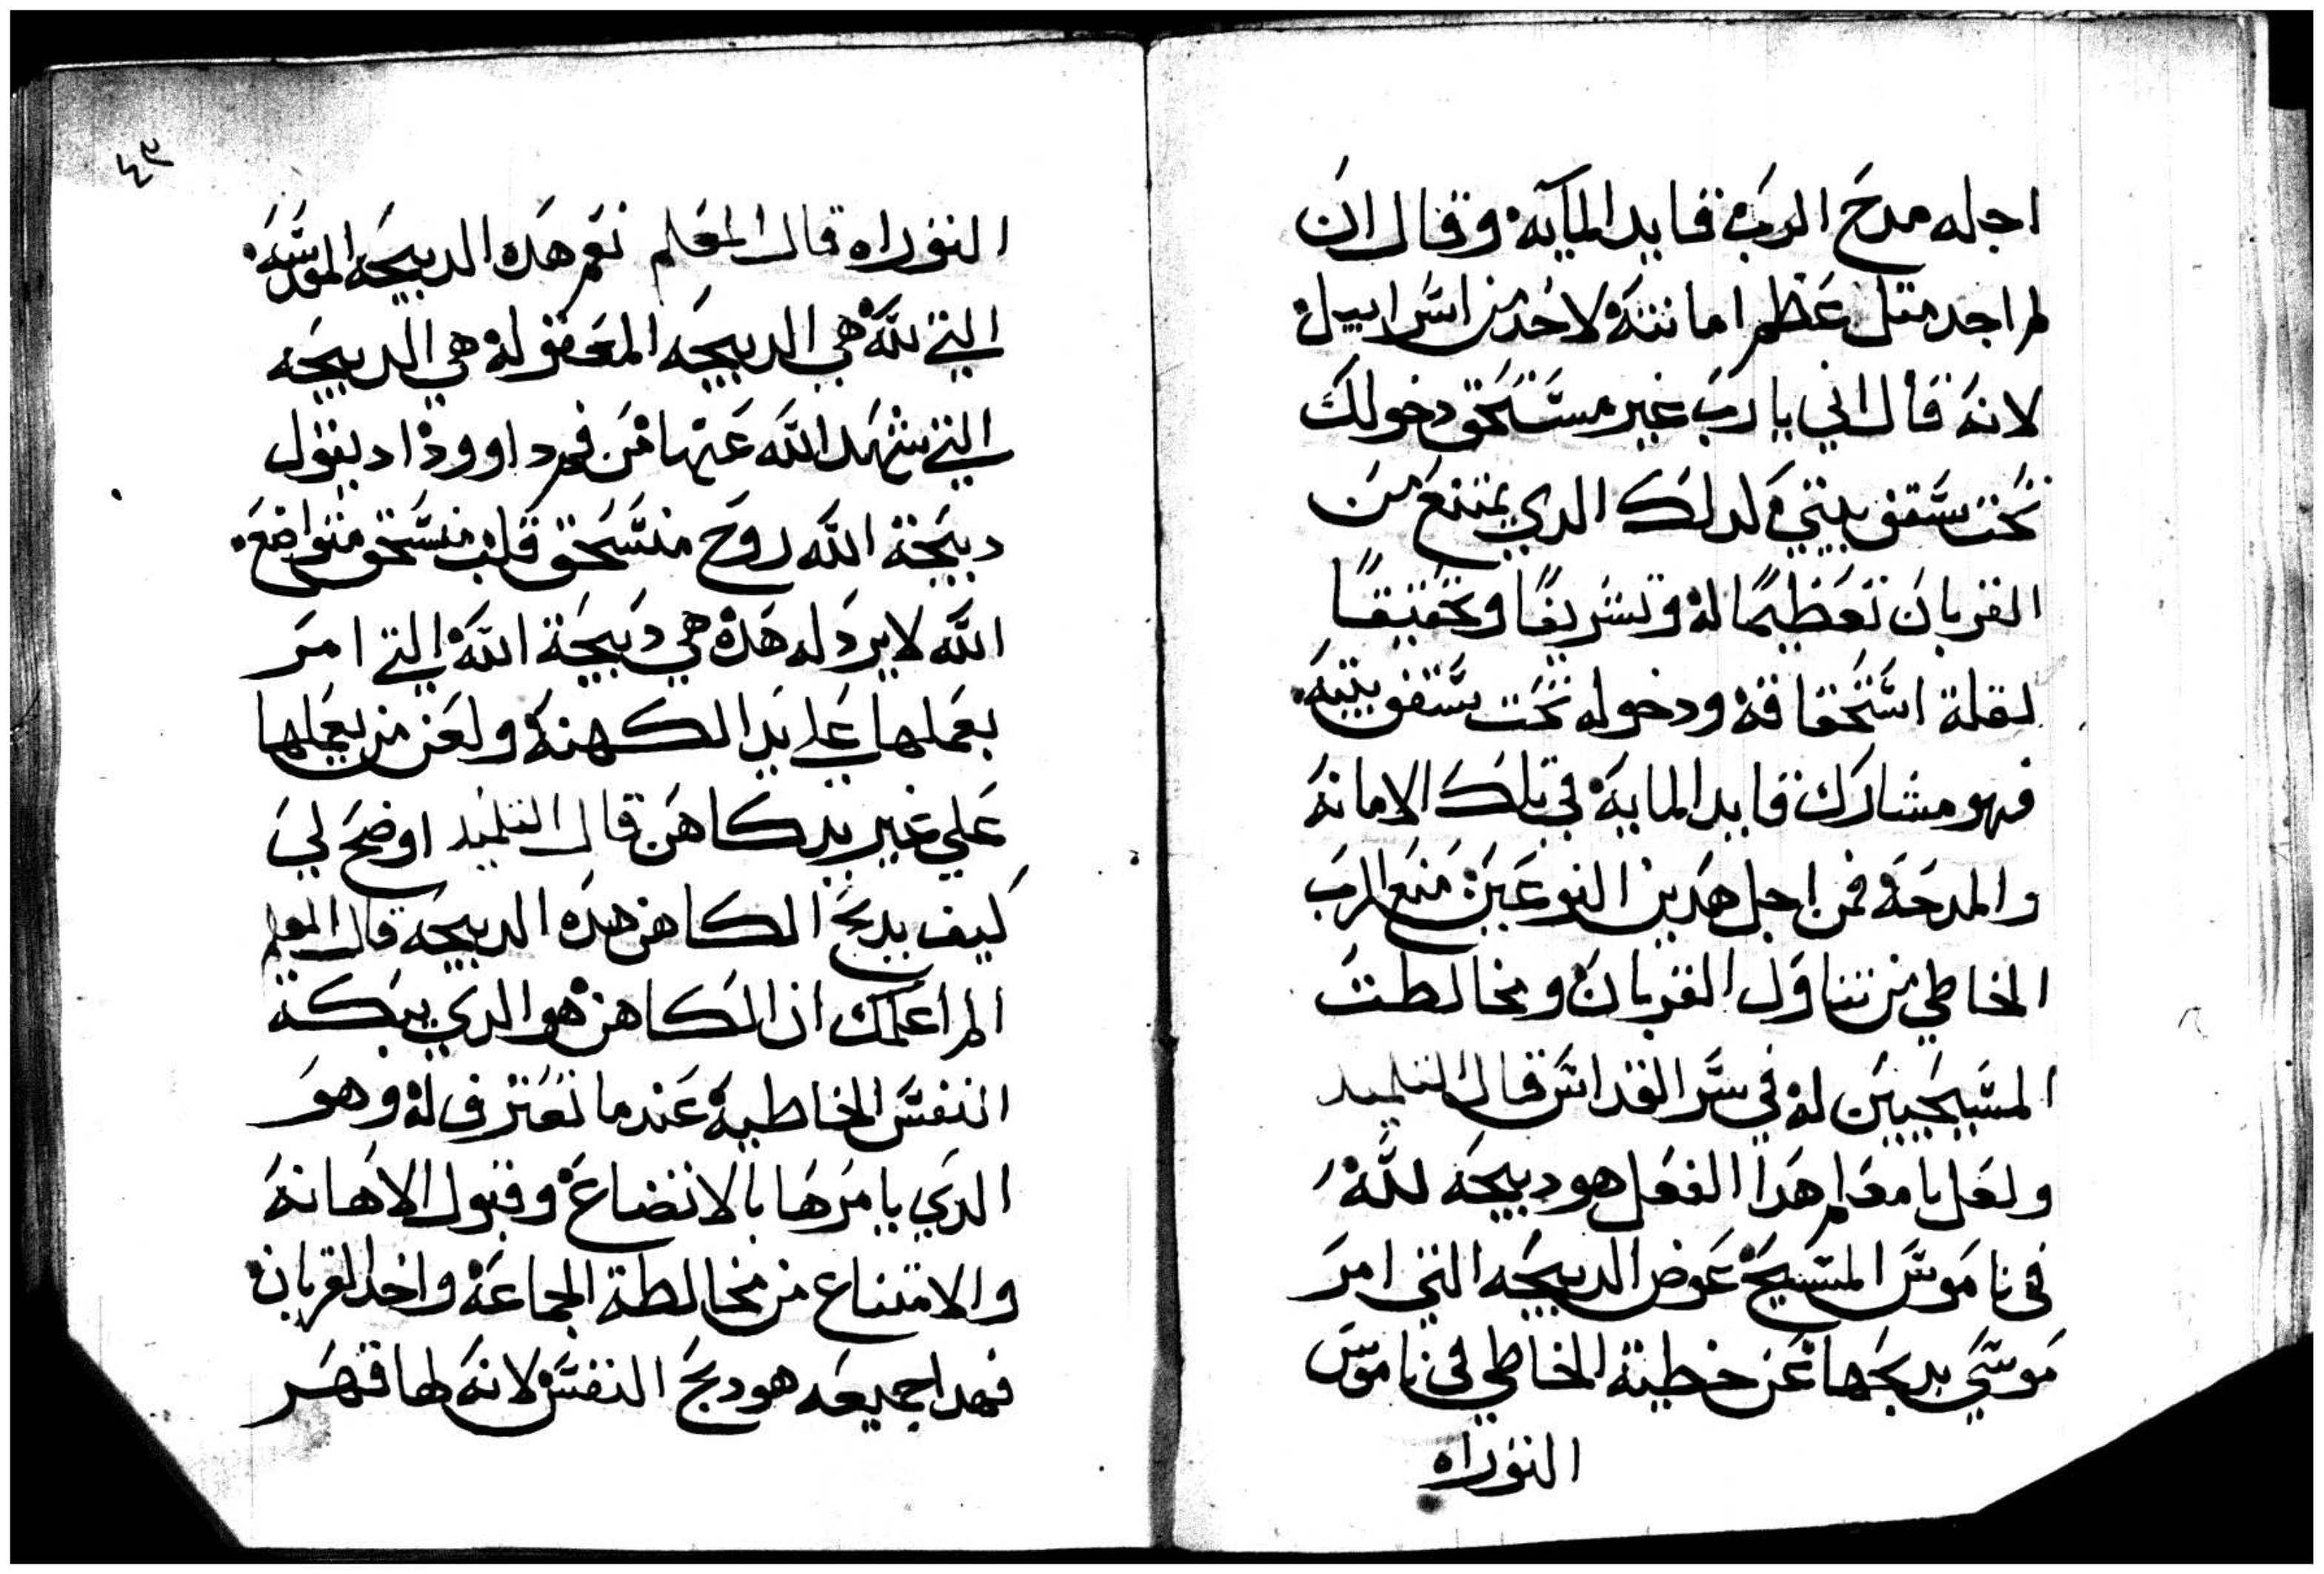 اجله مدح الرب قايد المآية وقال ان
لم اجد مثل عظم امانته لاحد من اسراييل
لانه قال اني يا رب غير مستحق دخولك
تحت سقف بيتي كدلك الدي يمتنع من
القربان تعظيمًا له وتشريفًا وتحقيقًا
لقلة استحقاقه ودخوله تحت سقف بيته
فهو مشارك قايد الماية في تلك الامانة
والمدحة فمن اجل هدين النوعين منع الرب
الخاطي من تناول القربان ومخالطت
المسيحيين له في سر القداس قال التلميد
ولعل يا معلم هدا الفعل هو دبيحه لله
في ناموس المسيح عوض الدبيحه التي امر
موسي بدبحها عن خطية الخاطي في ناموس
التوراه
٤٣
التوراه قال المعلم نعم هده الدبيحه المقدسه
التي لله هي الدبيحه المعقوله هي الدبيحه
التي شهد الله عنها من فم داوود اد يقول
دبيحة الله روح منسحق قلب منسحق متواضع
الله لا يردله هده هي دبيحة الله التي امر
بعملها علي يد الكهنة ولعن من يعملها
علي غير يد كاهن قال التلميد اوضح لي
كيف يدبح الكاهن هده الدبيحه قال المعلم
الم اعلمك ان الكاهن هو الدي يبكت
النفس الخاطية عندما تعترف له وهو
الدي يامرها بالاتضاع وقبول الاهانة
والامتناع من مخالطة الجماعة واخد القربان
فهدا جميعه هو دبح النفس لانه لها قهر